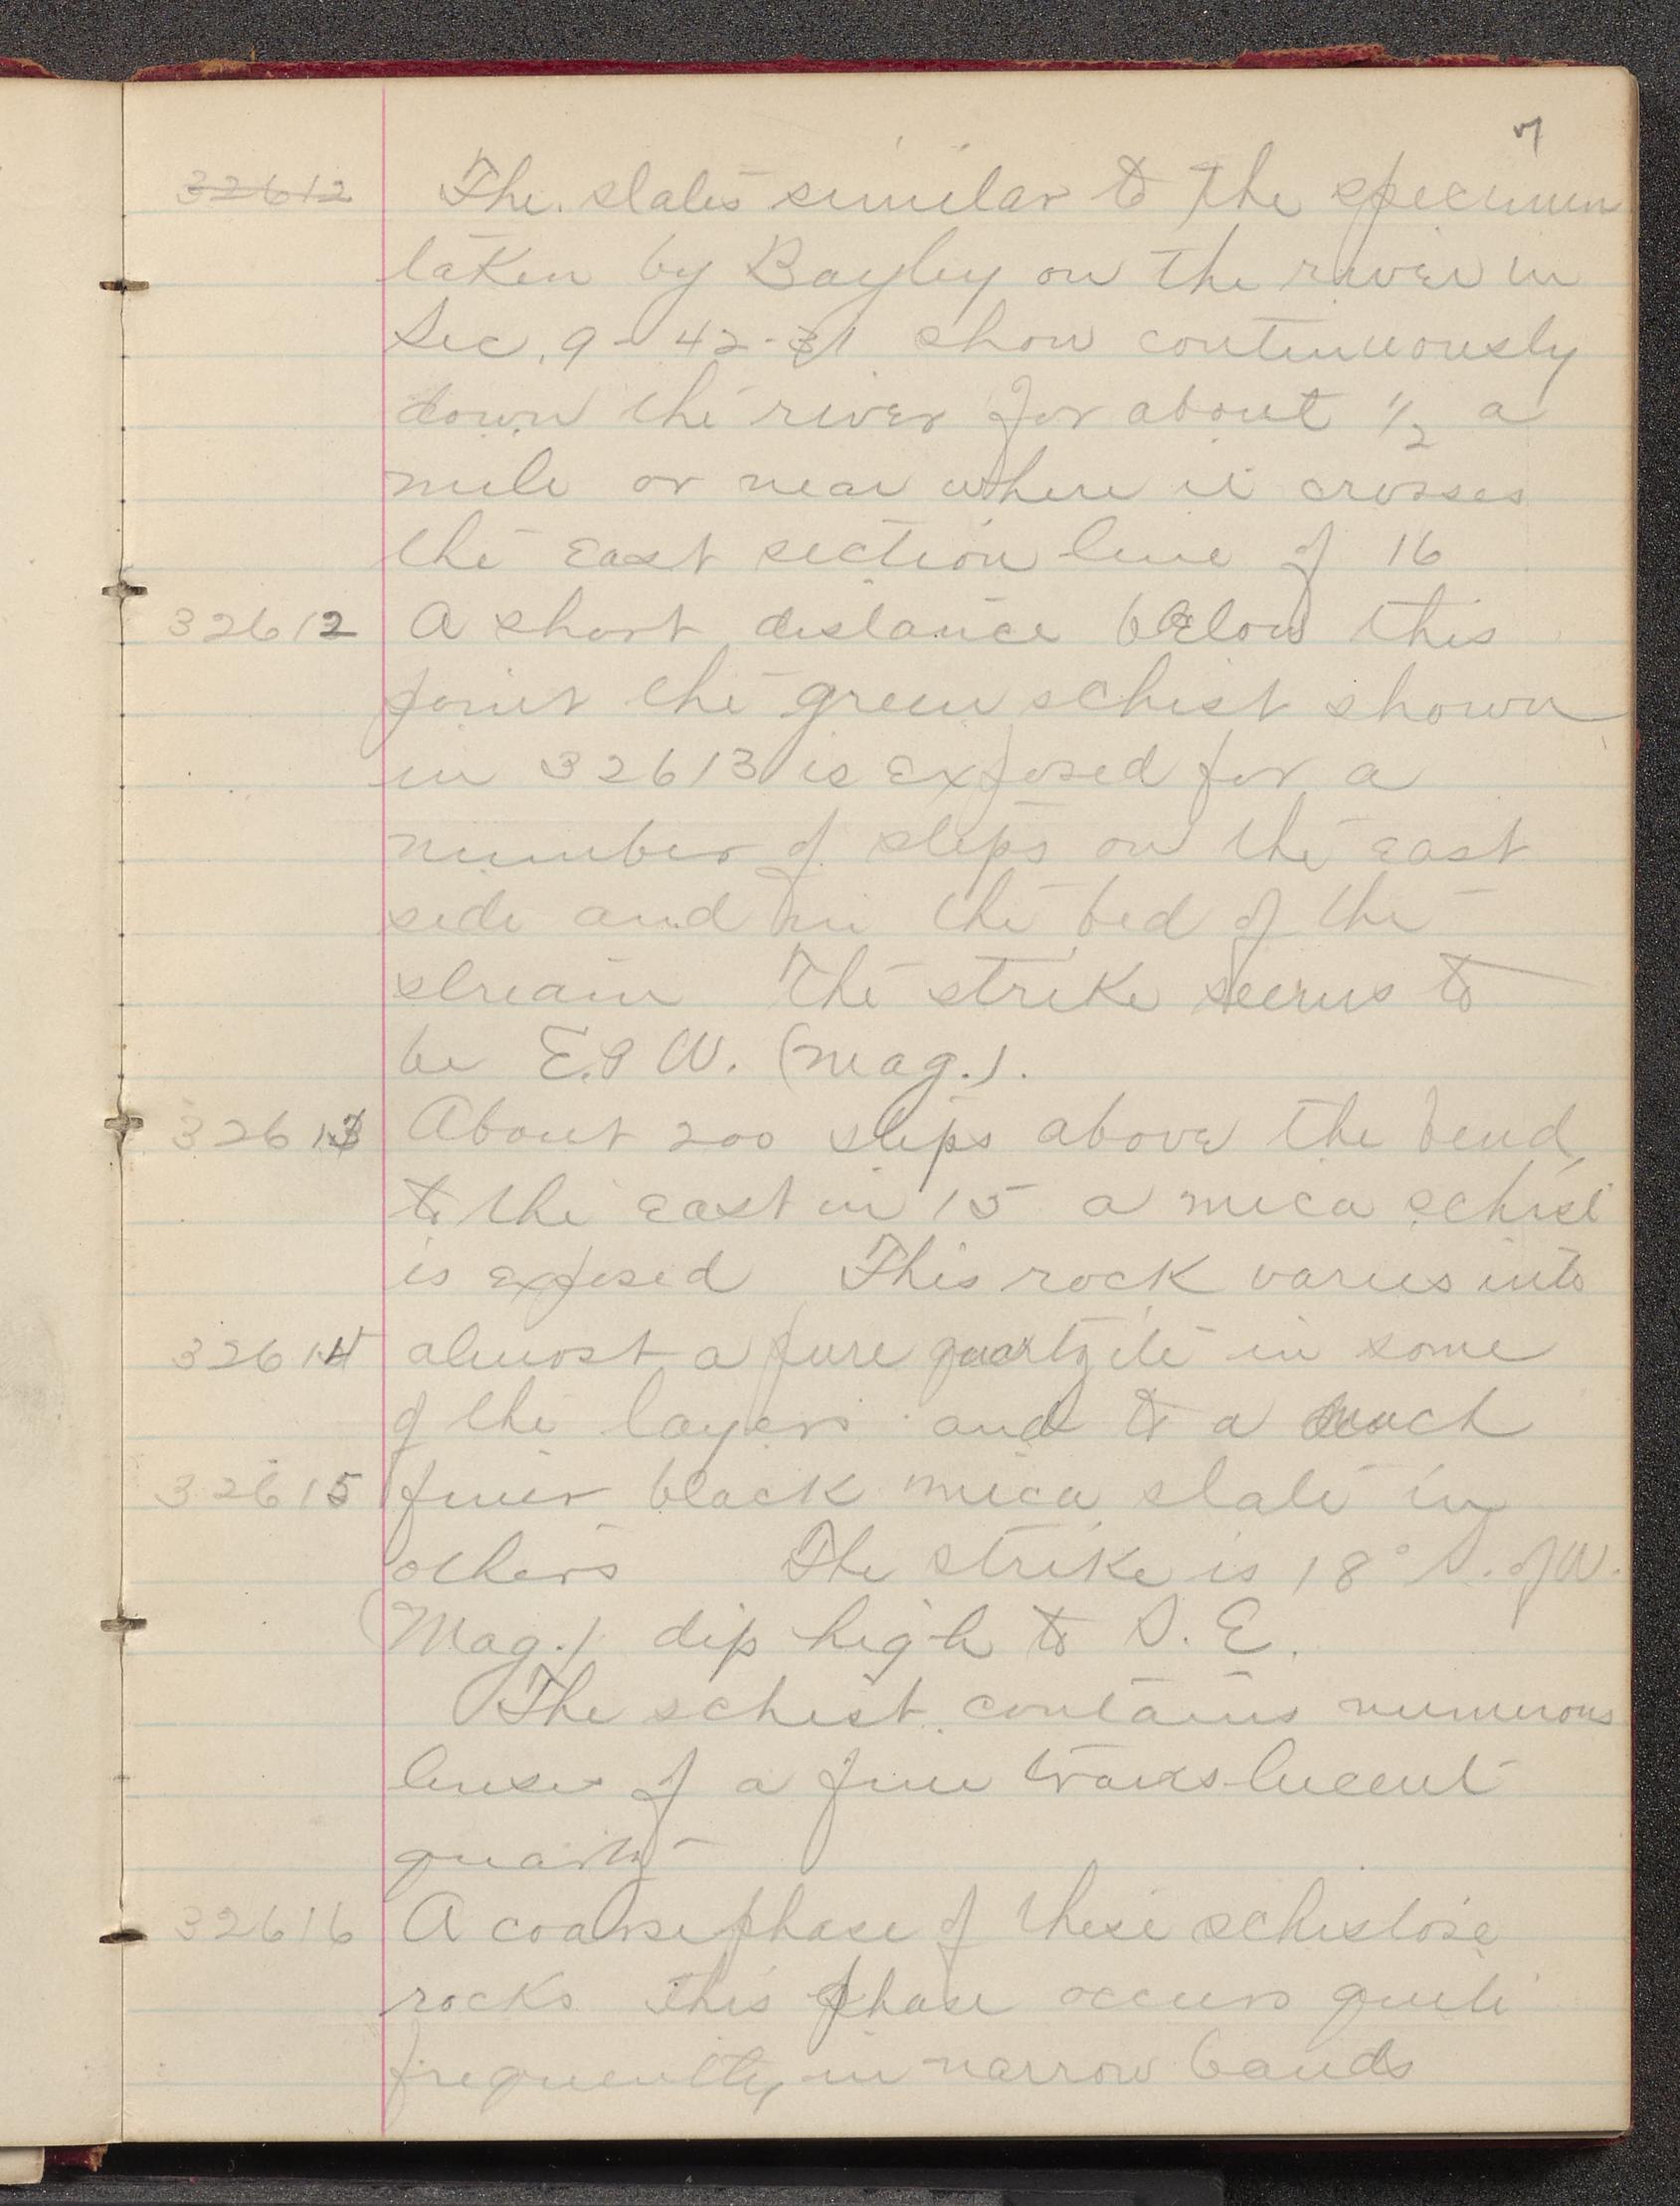 7
32612 The slates similar to the specimen
taken by Bayley on the river in
Sec. 9 - 42 - 31 show continuously
down the river for about 1/2 a
mile or near where it crosses
the East section line of 16
32612 A short distance below this
point the green schist shown
in 32613 is exposed for a
number of steps on the east
side and in the bed of the
stream The strike seems to
be E. & W. (mag.).
32613 About 200 steps above the bend
to the east in 15 a mica schist
is exposed This rock varies into
32614 almost a pure quartzite in some
of the layers and to a much
32615 finer black mica slate in
others The strike is 18° S. of W.
(Mag.) dip high to S. E.
The schist contains numerous
lenses of a fine translucent
quartz
32616 A coarse phase of these schistose
rocks This phase occurs quite
frequently in narrow bands